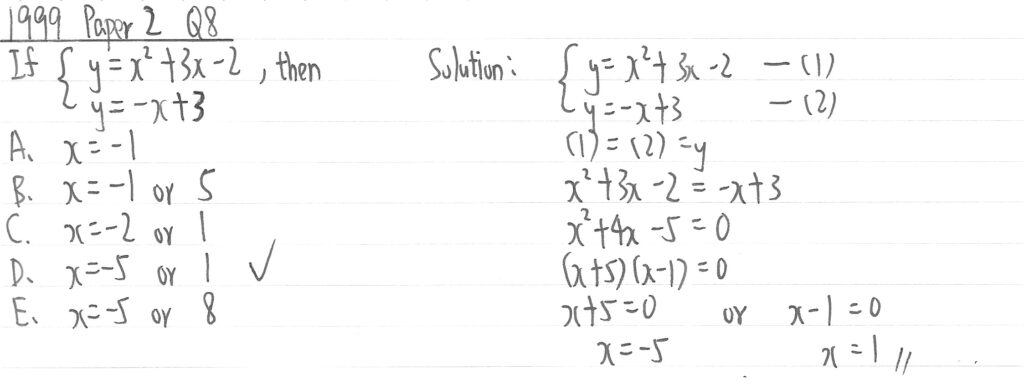 1999 Paper 2 Q8
If { y = x² + 3x - 2 , then
y = -x + 3
A. x = -1
B. x = -1 or 5
C. x = -2 or 1
D. x = -5 or 1 ✓
E. x = -5 or 8
Solution: { y = x² + 3x - 2 — (1)
y = -x + 3 — (2)
(1) = (2) = y
x² + 3x - 2 = -x + 3
x² + 4x - 5 = 0
(x+5)(x-1) = 0
x + 5 = 0 or x - 1 = 0
x = -5 x = 1 //